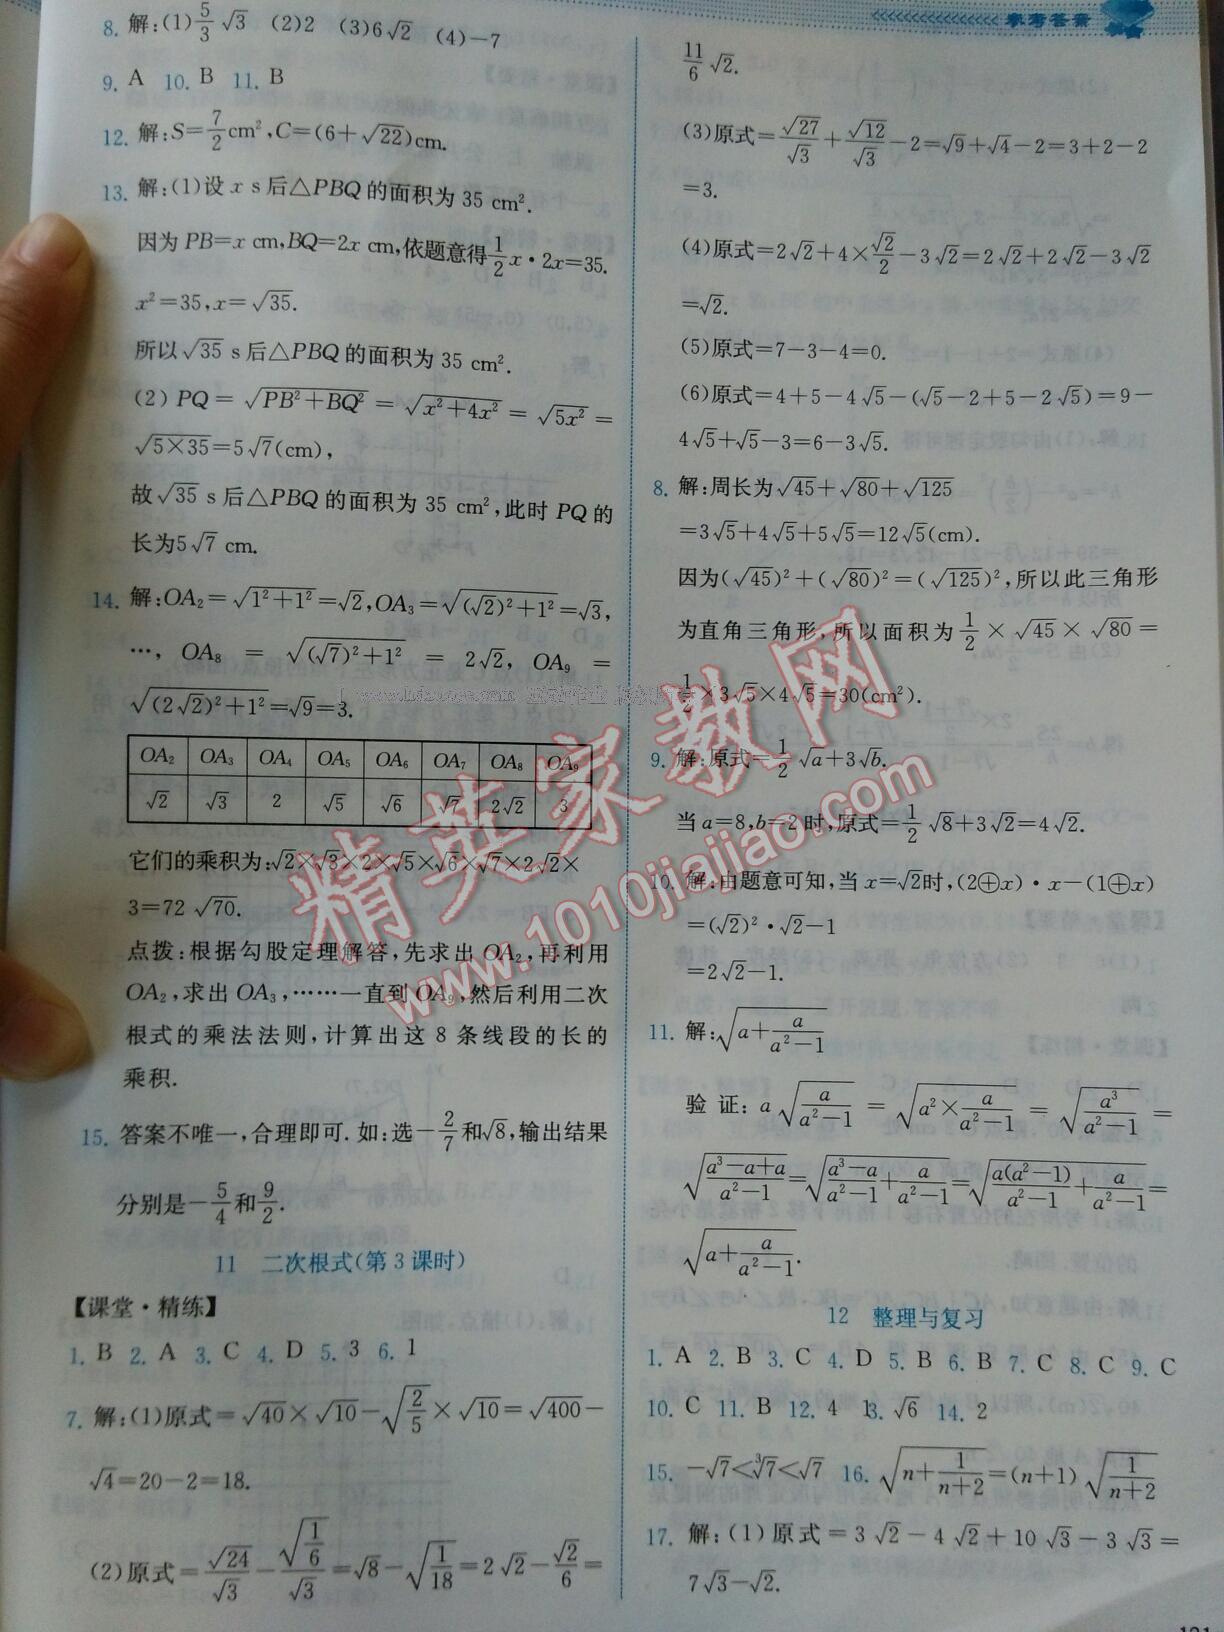 参考答案
8. 解:(1)5/3 √3 (2)2 (3)6√2 (4)-7
9. A 10. B 11. B
12. 解:S=7/2 cm²,C=(6+√22)cm.
13. 解:(1)设 x s后△PBQ的面积为 35 cm².
因为 PB=x cm,BQ=2x cm,依题意得 1/2 x·2x=35.
x²=35,x=√35.
所以√35 s后△PBQ的面积为 35 cm².
(2) PQ = √(PB²+BQ²) = √(x²+4x²) = √(5x²) =
√(5×35)=5√7(cm),
故√35 s后△PBQ的面积为 35 cm²,此时 PQ 的
长为5√7 cm.
14. 解:OA₂=√(1²+1²)=√2,OA₃=√((√2)²+1²)=√3,
…, OA₈ = √((√7)²+1²) = 2√2, OA₉ =
√((2√2)²+1²)=√9=3.
OA₂ OA₃ OA₄ OA₅ OA₆ OA₇ OA₈ OA₉
√2 √3 2 √5 √6 √7 2√2 3
它们的乘积为:√2×√3×2×√5×√6×√7×2√2×
3=72 √70.
点拨:根据勾股定理解答,先求出 OA₂,再利用
OA₂,求出 OA₃,……一直到 OA₉,然后利用二次
根式的乘法法则,计算出这 8 条线段的长的
乘积.
15. 答案不唯一,合理即可.如:选-2/7和√8,输出结果
分别是-5/4和9/2.
11 二次根式(第 3 课时)
【课堂·精练】
1. B 2. A 3. C 4. D 5. 3 6. 1
7. 解:(1)原式=√40×√10-√(2/5)×√10=√400-
√4=20-2=18.
(2)原式=√24/√3-√(1/6)/√3=√8-√(1/18)=2√2-√2/6=
11/6 √2.
(3)原式=√27/√3+√12/√3-2=√9+√4-2=3+2-2
=3.
(4)原式=2√2+4×√2/2-3√2=2√2+2√2-3√2
=√2.
(5)原式=7-3-4=0.
(6)原式=4+5-4√5-(√5-2+5-2√5)=9-
4√5+√5-3=6-3√5.
8. 解:周长为√45+√80+√125
=3√5+4√5+5√5=12√5(cm).
因为(√45)²+(√80)²=(√125)²,所以此三角形
为直角三角形,所以面积为 1/2×√45×√80=
1/2×3√5×4√5=30(cm²).
9. 解:原式=1/2 √a+3√b.
当 a=8,b=2 时,原式=1/2 √8+3√2=4√2.
10. 解:由题意可知,当 x=√2时,(2⊕x)·x-(1⊕x)
=(√2)²·√2-1
=2√2-1.
11. 解:√(a+a/(a²-1))
验证: a√(a/(a²-1)) = √(a²×a/(a²-1)) = √(a³/(a²-1)) =
√((a³-a+a)/(a²-1))=√((a³-a)/(a²-1)+a/(a²-1))=√(a(a²-1)/(a²-1)+a/(a²-1))=
√(a+a/(a²-1)).
12 整理与复习
1. A 2. B 3. C 4. D 5. B 6. B 7. C 8. C 9. C
10. C 11. B 12. 4 13. √6 14. 2
15. -√7<∛7<√7 16. √(n+1/(n+2))=(n+1)√(1/(n+2))
17. 解:(1)原式=3√2-4√2+10√3-3√3=
7√3-√2.
精英家教网
www.1010jiajiao.com